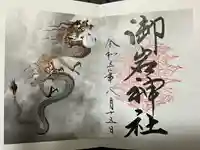 御岩神社
令和三年八月十五日